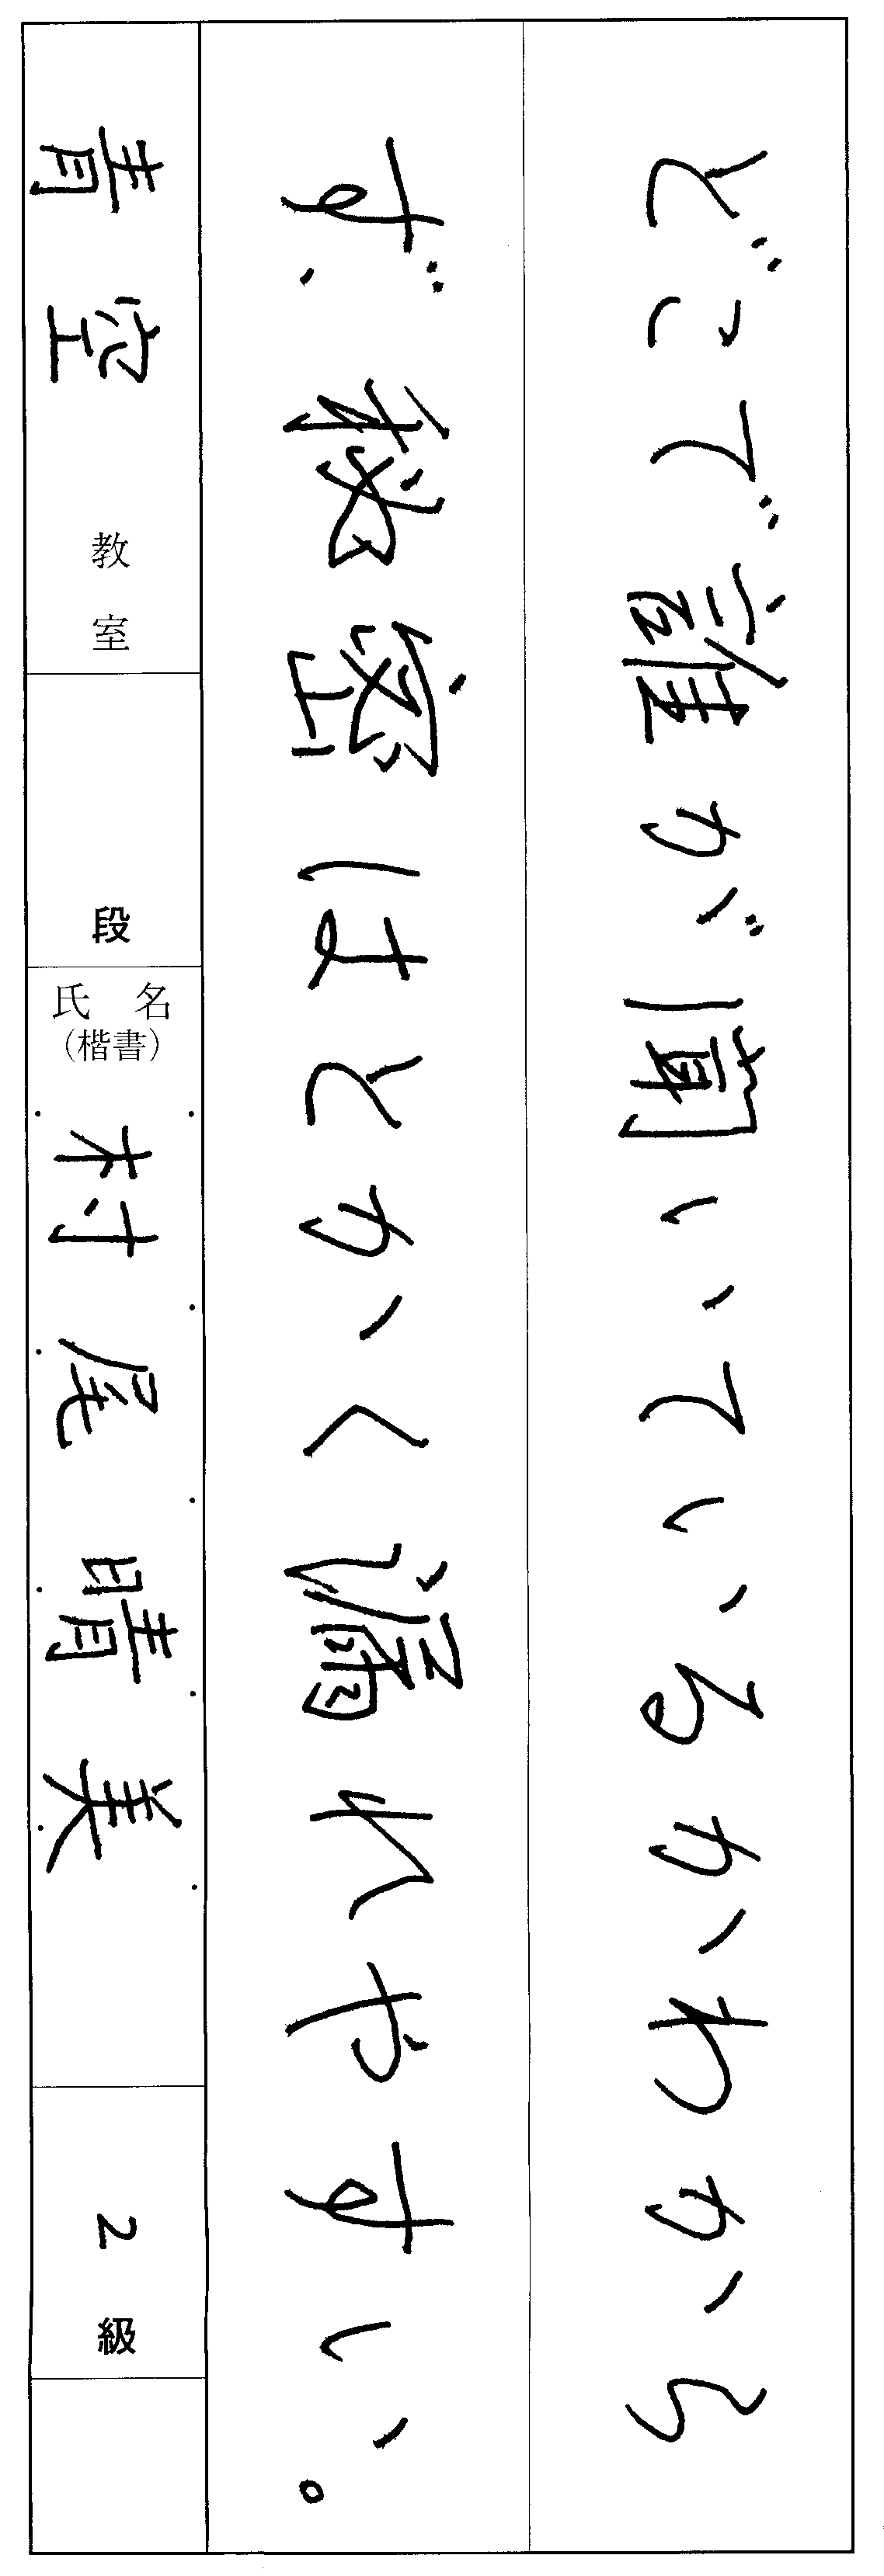 どこで誰が聞いているかわから
ず、秘密はとかく漏れやすい。
青空教室
段
氏名
(楷書)
村尾晴美
2級